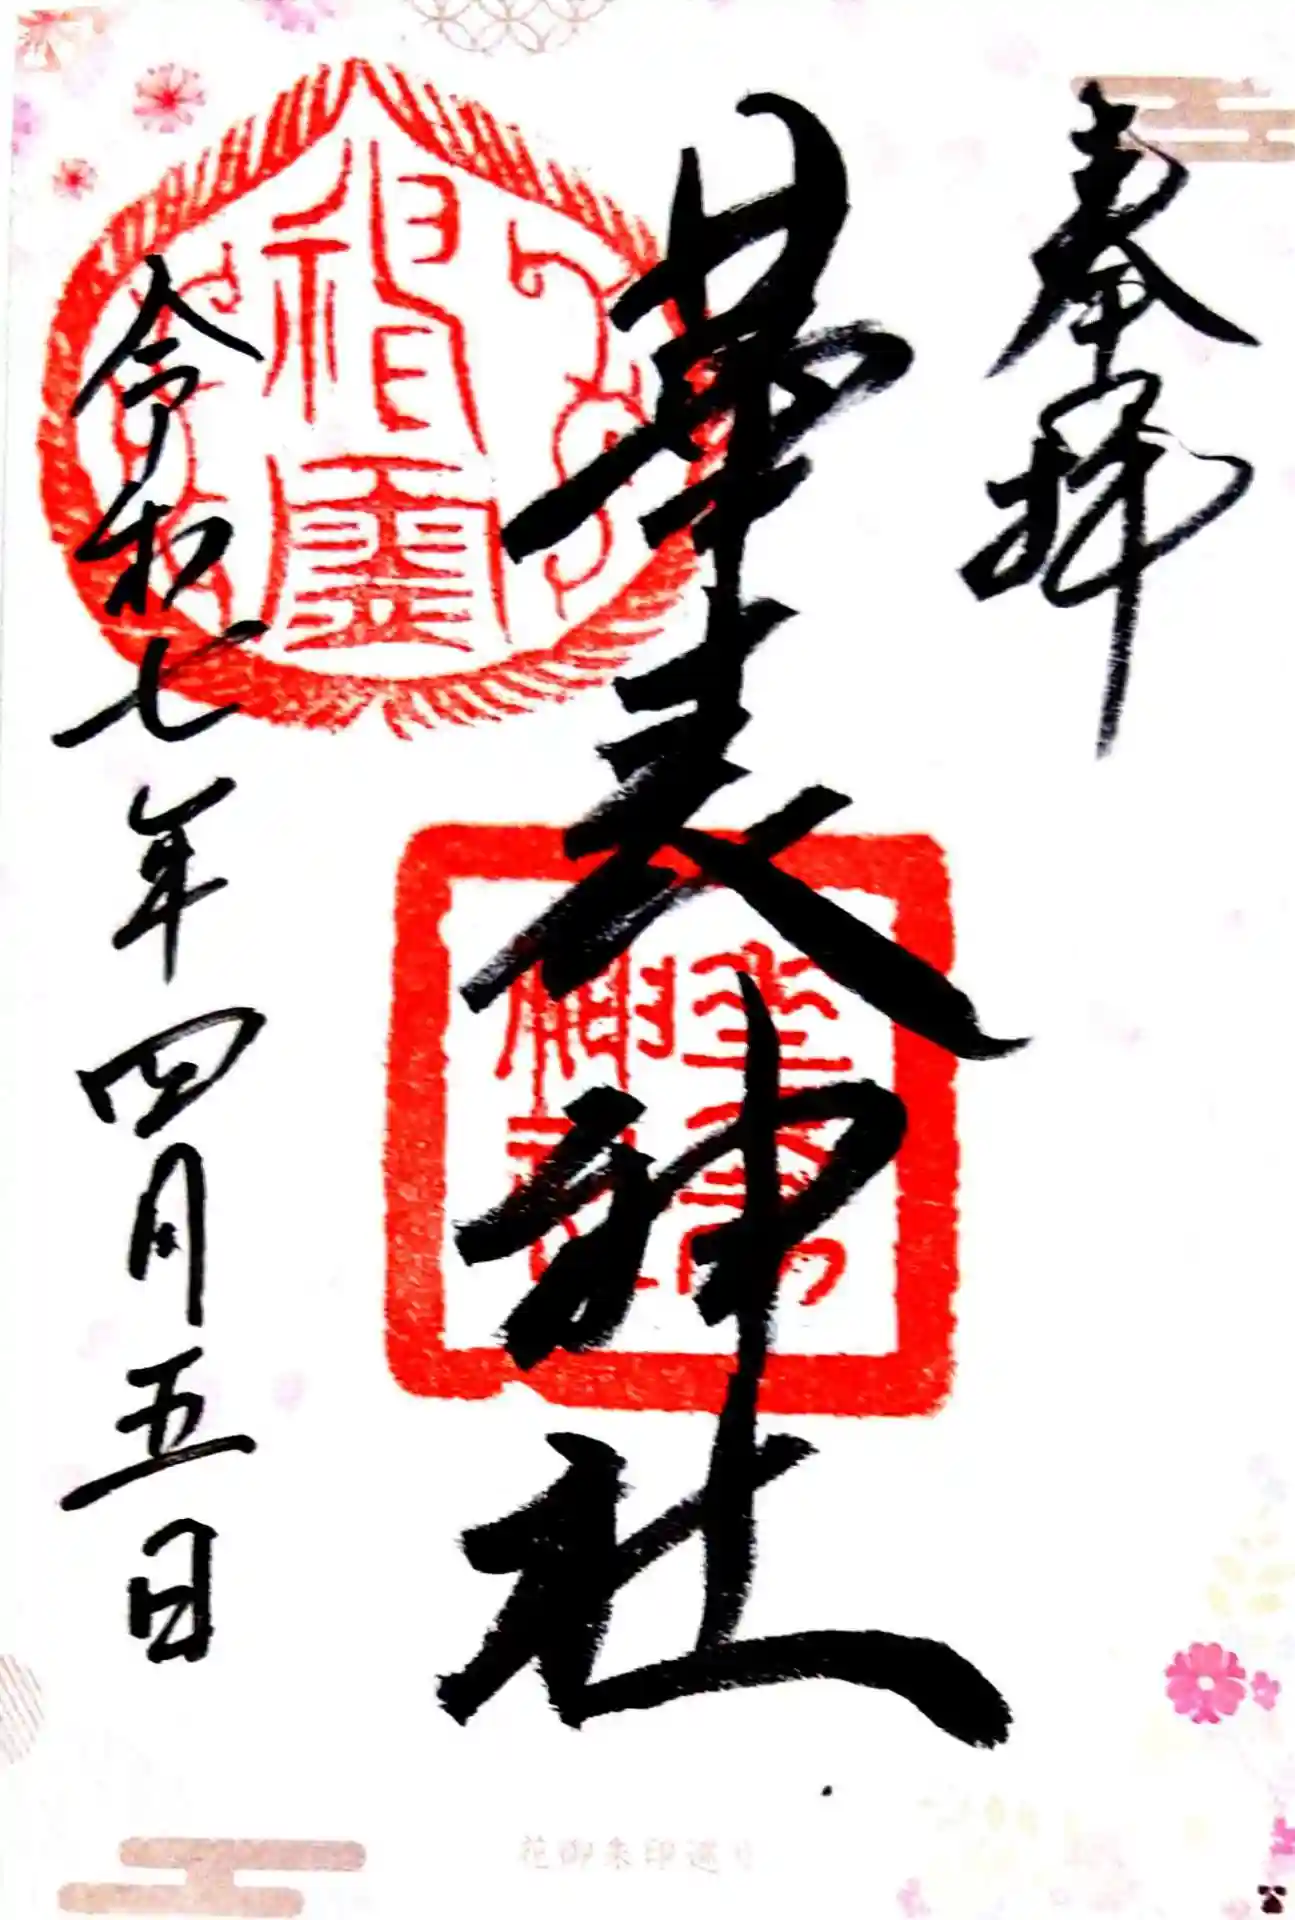 奉拝
華表神社
令和七年四月五日
花御朱印巡り